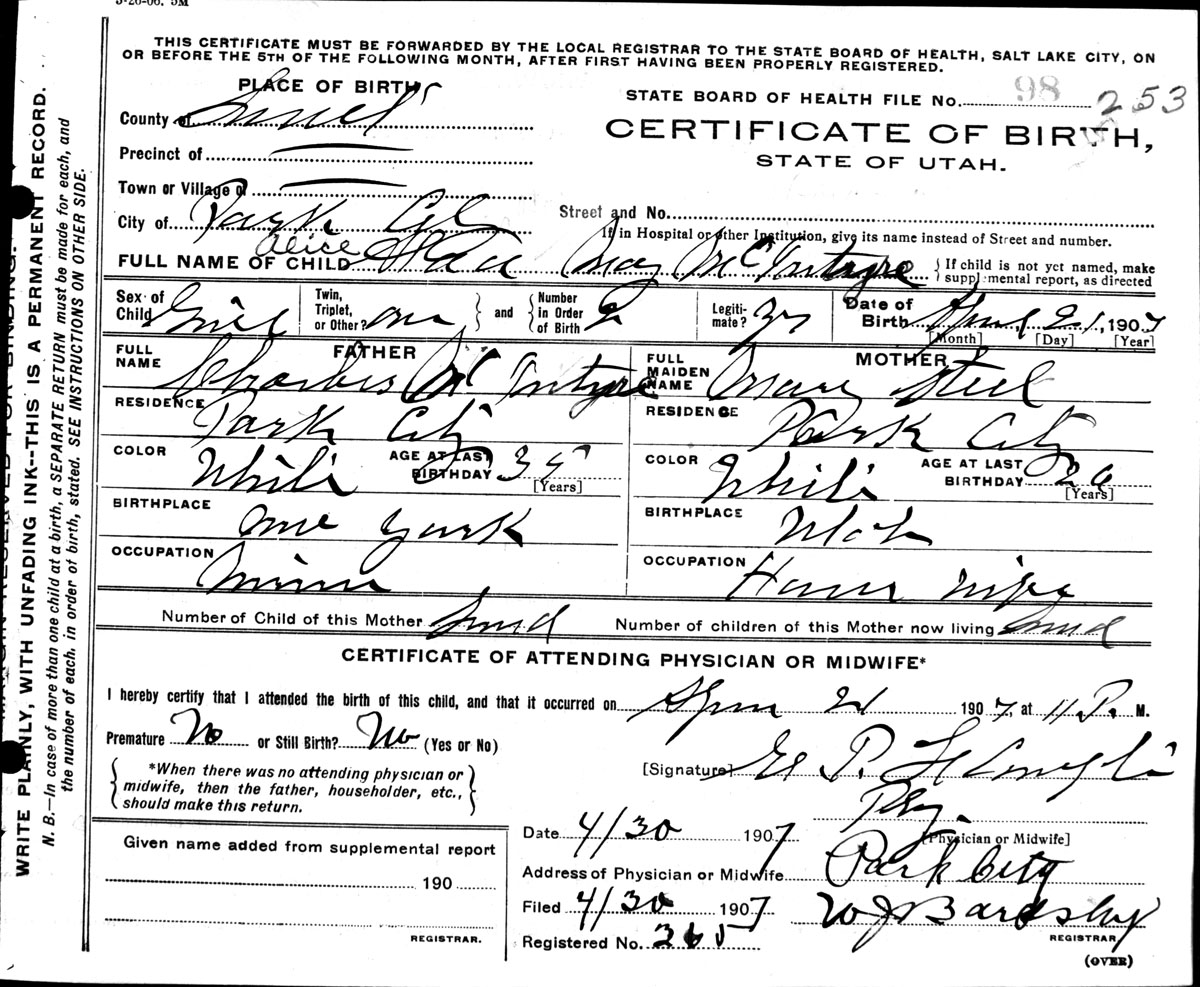 3-26-06. 5M
THIS CERTIFICATE MUST BE FORWARDED BY THE LOCAL REGISTRAR TO THE STATE BOARD OF HEALTH, SALT LAKE CITY, ON
OR BEFORE THE 5TH OF THE FOLLOWING MONTH, AFTER FIRST HAVING BEEN PROPERLY REGISTERED.
PLACE OF BIRTH
STATE BOARD OF HEALTH FILE NO. 98 253
County of Summit
CERTIFICATE OF BIRTH,
STATE OF UTAH.
Precinct of
Town or Village of
City of Park City
Street and No.
If in Hospital or other Institution, give its name instead of Street and number.
FULL NAME OF CHILD Alice May McIntyre
{If child is not yet named, make
supplemental report, as directed
Sex of Child Girl
Twin, Triplet, or Other? one } and { Number in Order of Birth 2
Legitimate?
Date of Birth April 21, 1907
[Month] [Day] [Year]
FATHER
FULL NAME Charles McIntyre
RESIDENCE Park City
COLOR White
AGE AT LAST BIRTHDAY 35
[Years]
BIRTHPLACE New York
OCCUPATION Miner
MOTHER
FULL MAIDEN NAME Mary Steel
RESIDENCE Park City
COLOR White
AGE AT LAST BIRTHDAY 26
[Years]
BIRTHPLACE Utah
OCCUPATION House wife
Number of Child of this Mother Second
Number of children of this Mother now living Second
CERTIFICATE OF ATTENDING PHYSICIAN OR MIDWIFE*
I hereby certify that I attended the birth of this child, and that it occurred on April 21 1907, at 11 P. M.
Premature No or Still Birth? No (Yes or No)
[Signature] P.
*When there was no attending physician or
midwife, then the father, householder, etc.,
should make this return.
Phy.
[Physician or Midwife]
Date 4/30 1907
Given name added from supplemental report
190
REGISTRAR.
Address of Physician or Midwife Park City
Filed 4/30 1907 W J Bardsley
REGISTRAR
Registered No. 265
(OVER)
MARGIN RESERVED FOR BINDING.
WRITE PLAINLY, WITH UNFADING INK--THIS IS A PERMANENT RECORD.
N. B.—In case of more than one child at a birth, a SEPARATE RETURN must be made for each, and
the number of each, in order of birth, stated. SEE INSTRUCTIONS ON OTHER SIDE.